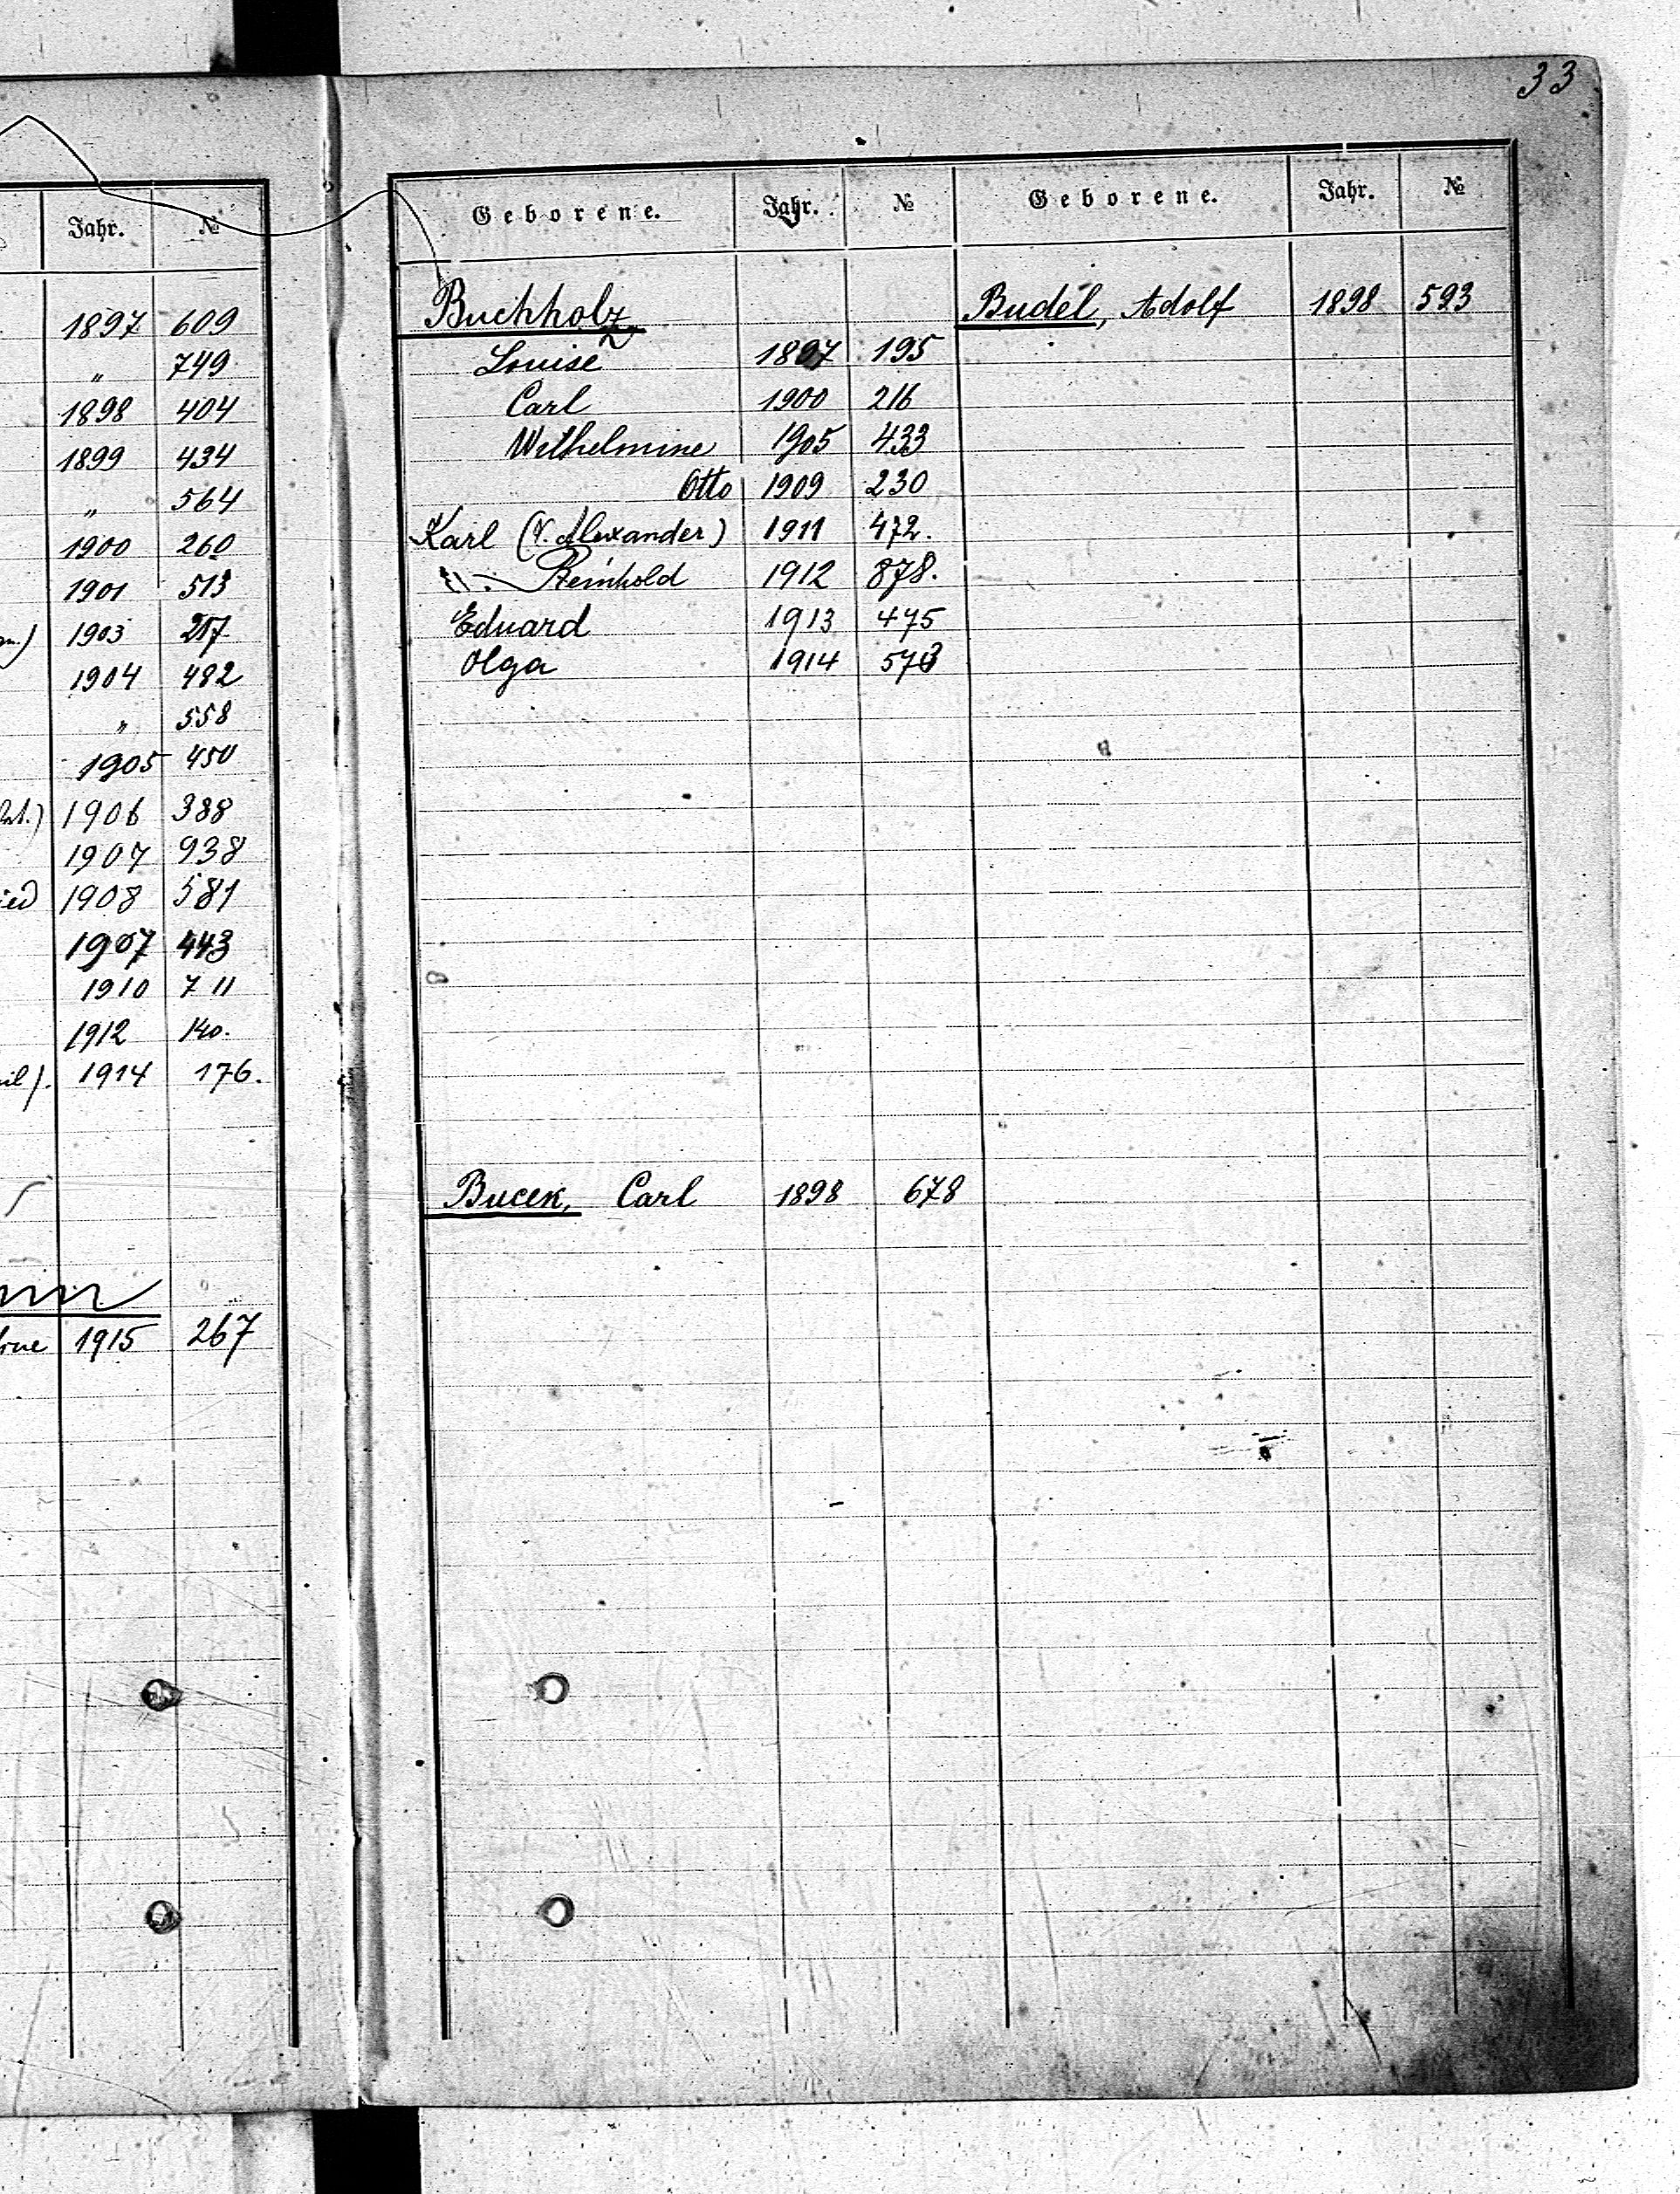 33
Jahr. №
1897 609
" 749
1898 404
1899 434
" 564
1900 260
1901 513
1903 217
1904 482
" 558
1905 450
1906 388
1907 938
1908 581
1907 443
1910 711
1912 140.
1914 176.
1915 267
Geborene. Jahr. № Geborene. Jahr. №
Buchholz Budel, Adolf 1898 593
Louise 1897 195
Carl 1900 216
Wilhelmine 1905 433
Otto 1909 230
Karl (V. Alexander) 1911 472.
Reinhold 1912 878.
Eduard 1913 475
Olga 1914
Bucek, Carl 1898 678